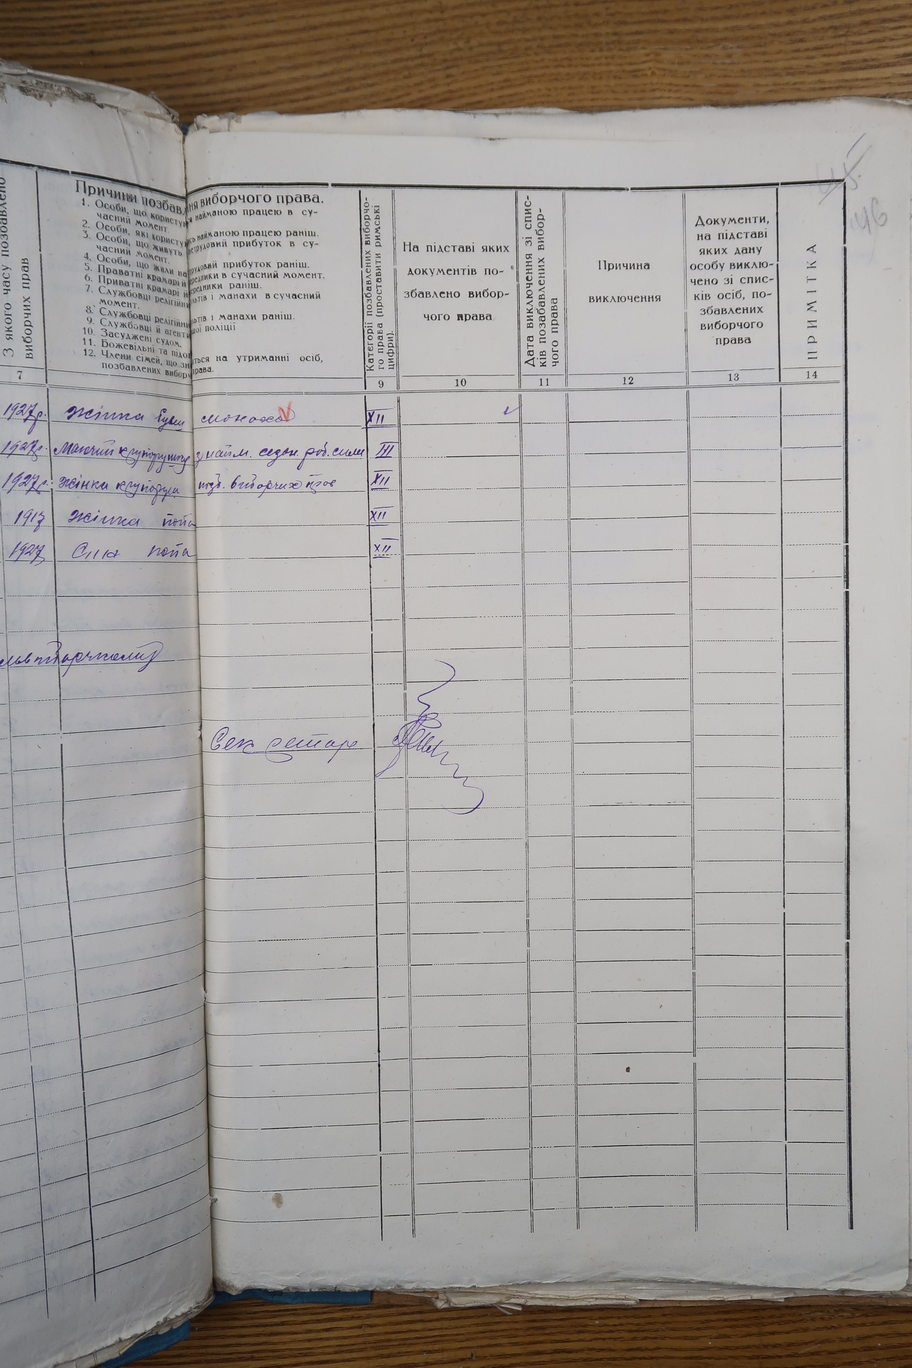 З якого часу позбавлено
виборчих прав
Причини позбавлення виборчого права.
1. Особи, що користу наймaною працею в су-
часний момент.
2. Особи, які користу найманою працею раніш.
3. Особи, що живуть нетрудовий прибуток в су-
часний момент.
4. Особи, що жили на прибуток раніш.
5. Приватні крамарі й в сучасний момент.
6. Приватні крамарі й раніш.
7. Службовці релігійн і манахи в сучасний
момент.
8. Службовці релігійн і манахи раніш
9. Службовці й агенти поліції
10. Засуджені судом.
11. Божевільні та
12. Члени сімей, що на утриманні осіб,
позбавлених виборч права.
Категорії позбавлених виборчо-
го права (проставити римські
цифри).
На підставі яких
документів по-
збавлено вибор-
чого права
Дата виключення зі спис-
ків позабавлених вибор-
чого права
Причина
виключення
Документи,
на підставі
яких дану
особу виклю-
чено зі спис-
ків осіб, по-
збавлених
виборчого
права
ПРИМІТКА
146
7 9 10 11 12 13 14
1927р. Жінка монаха XII
1927р. з найм. роб. сили III
1927р. Жінка позб. виборчих прав XII
1917 Жінка попа XII
1927 Син попа XII
Секретар